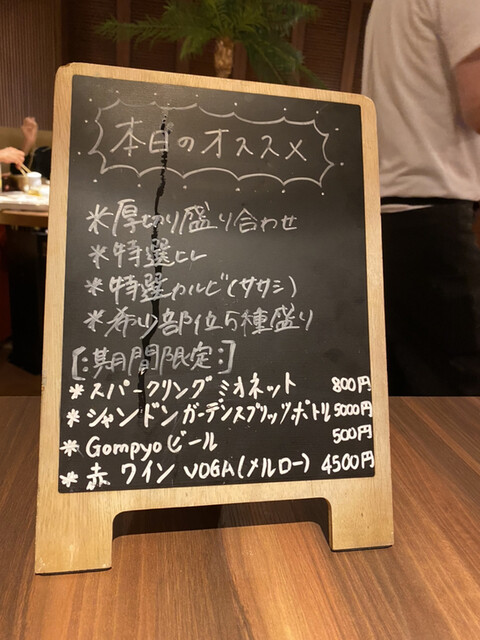 本日のオススメ
*厚切り盛り合わせ
*特選ヒレ
*特選カルビ(ササミ)
*希少部位5種盛り
[:期間限定:]
*スパークリングミオネット 800円
*シャンドンガーデンスプリッツボトル 5000円
*Gompyoビール 500円
*赤ワイン VOGA(メルロー) 4500円